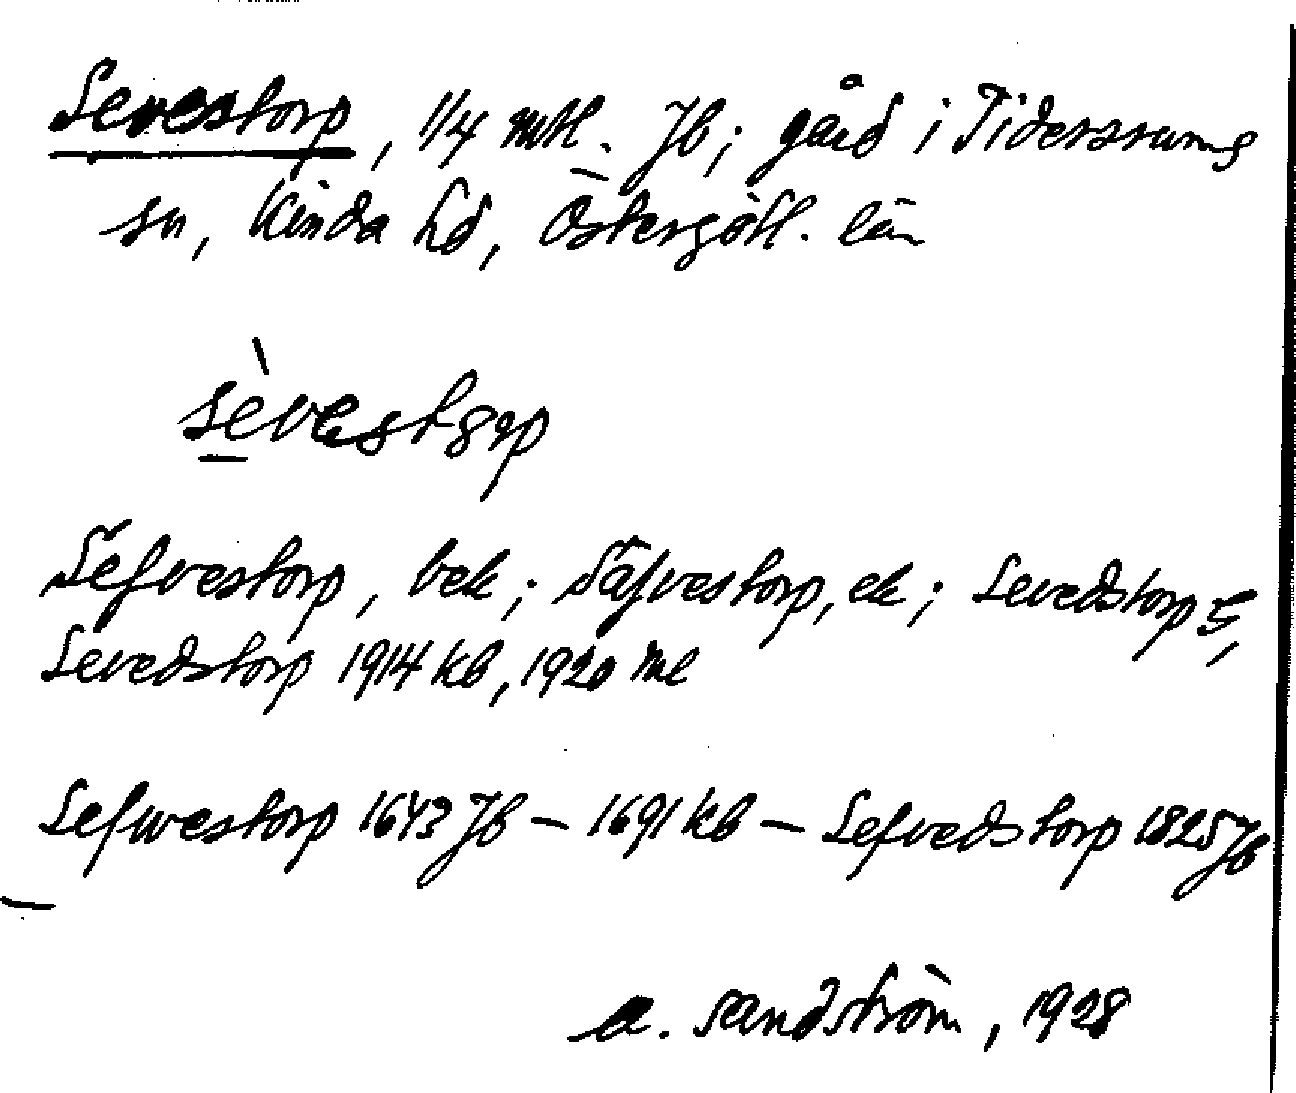 Sevestorp, 1/4 mtl. Jb; gård i Tidersrums
sn, Kinda hd, Östergötl. län
sèvestorp
Sefvestorp, bek; Säfvestorp, ek; Sevedstorp
Sevedstorp 1914 kb, 1920 ml
Sefwestorp 1643 Jb – 1691 kb – Sefvedstorp 1825 Jb
A. Sandström, 1928